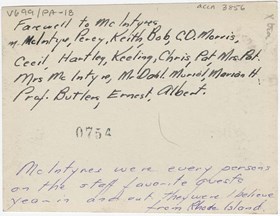 V699/PA-1B
accn 3856
Farewell to McIntyres.
Mr. McIntyre, Percy, Keith, Bob, C.D. Morris,
Cecil, Hartley, Keeling, Chris, Pat, Mrs. Pat.
Mrs McIntyre, Mr. Dahl. Muriel, Marian H.
Prof. Butler, Ernest, Albert.
0754
McIntyres were every persons
on the staff favorite guests
year in and out, they were I believe
from Rhode Island.